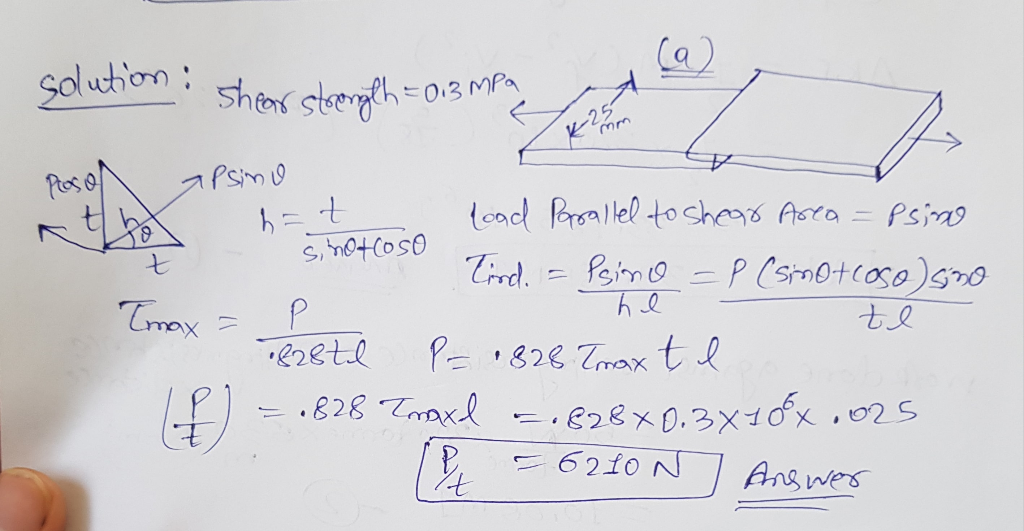 (a)
solution: Shear strength = 0.3 MPa
25 mm
Pcosθ
Psinθ
t
h
θ
t
h = t / sinθ+cosθ
load Parallel to shear Area = Psinθ
τind. = Psinθ / hl = P (sinθ+cosθ) sinθ / tl
τmax = P / .828tl
P = .828 τmax t l
(P/t) = .828 τmax l = .828 × 0.3×10⁶ × .025
P/t = 6210 N Answer